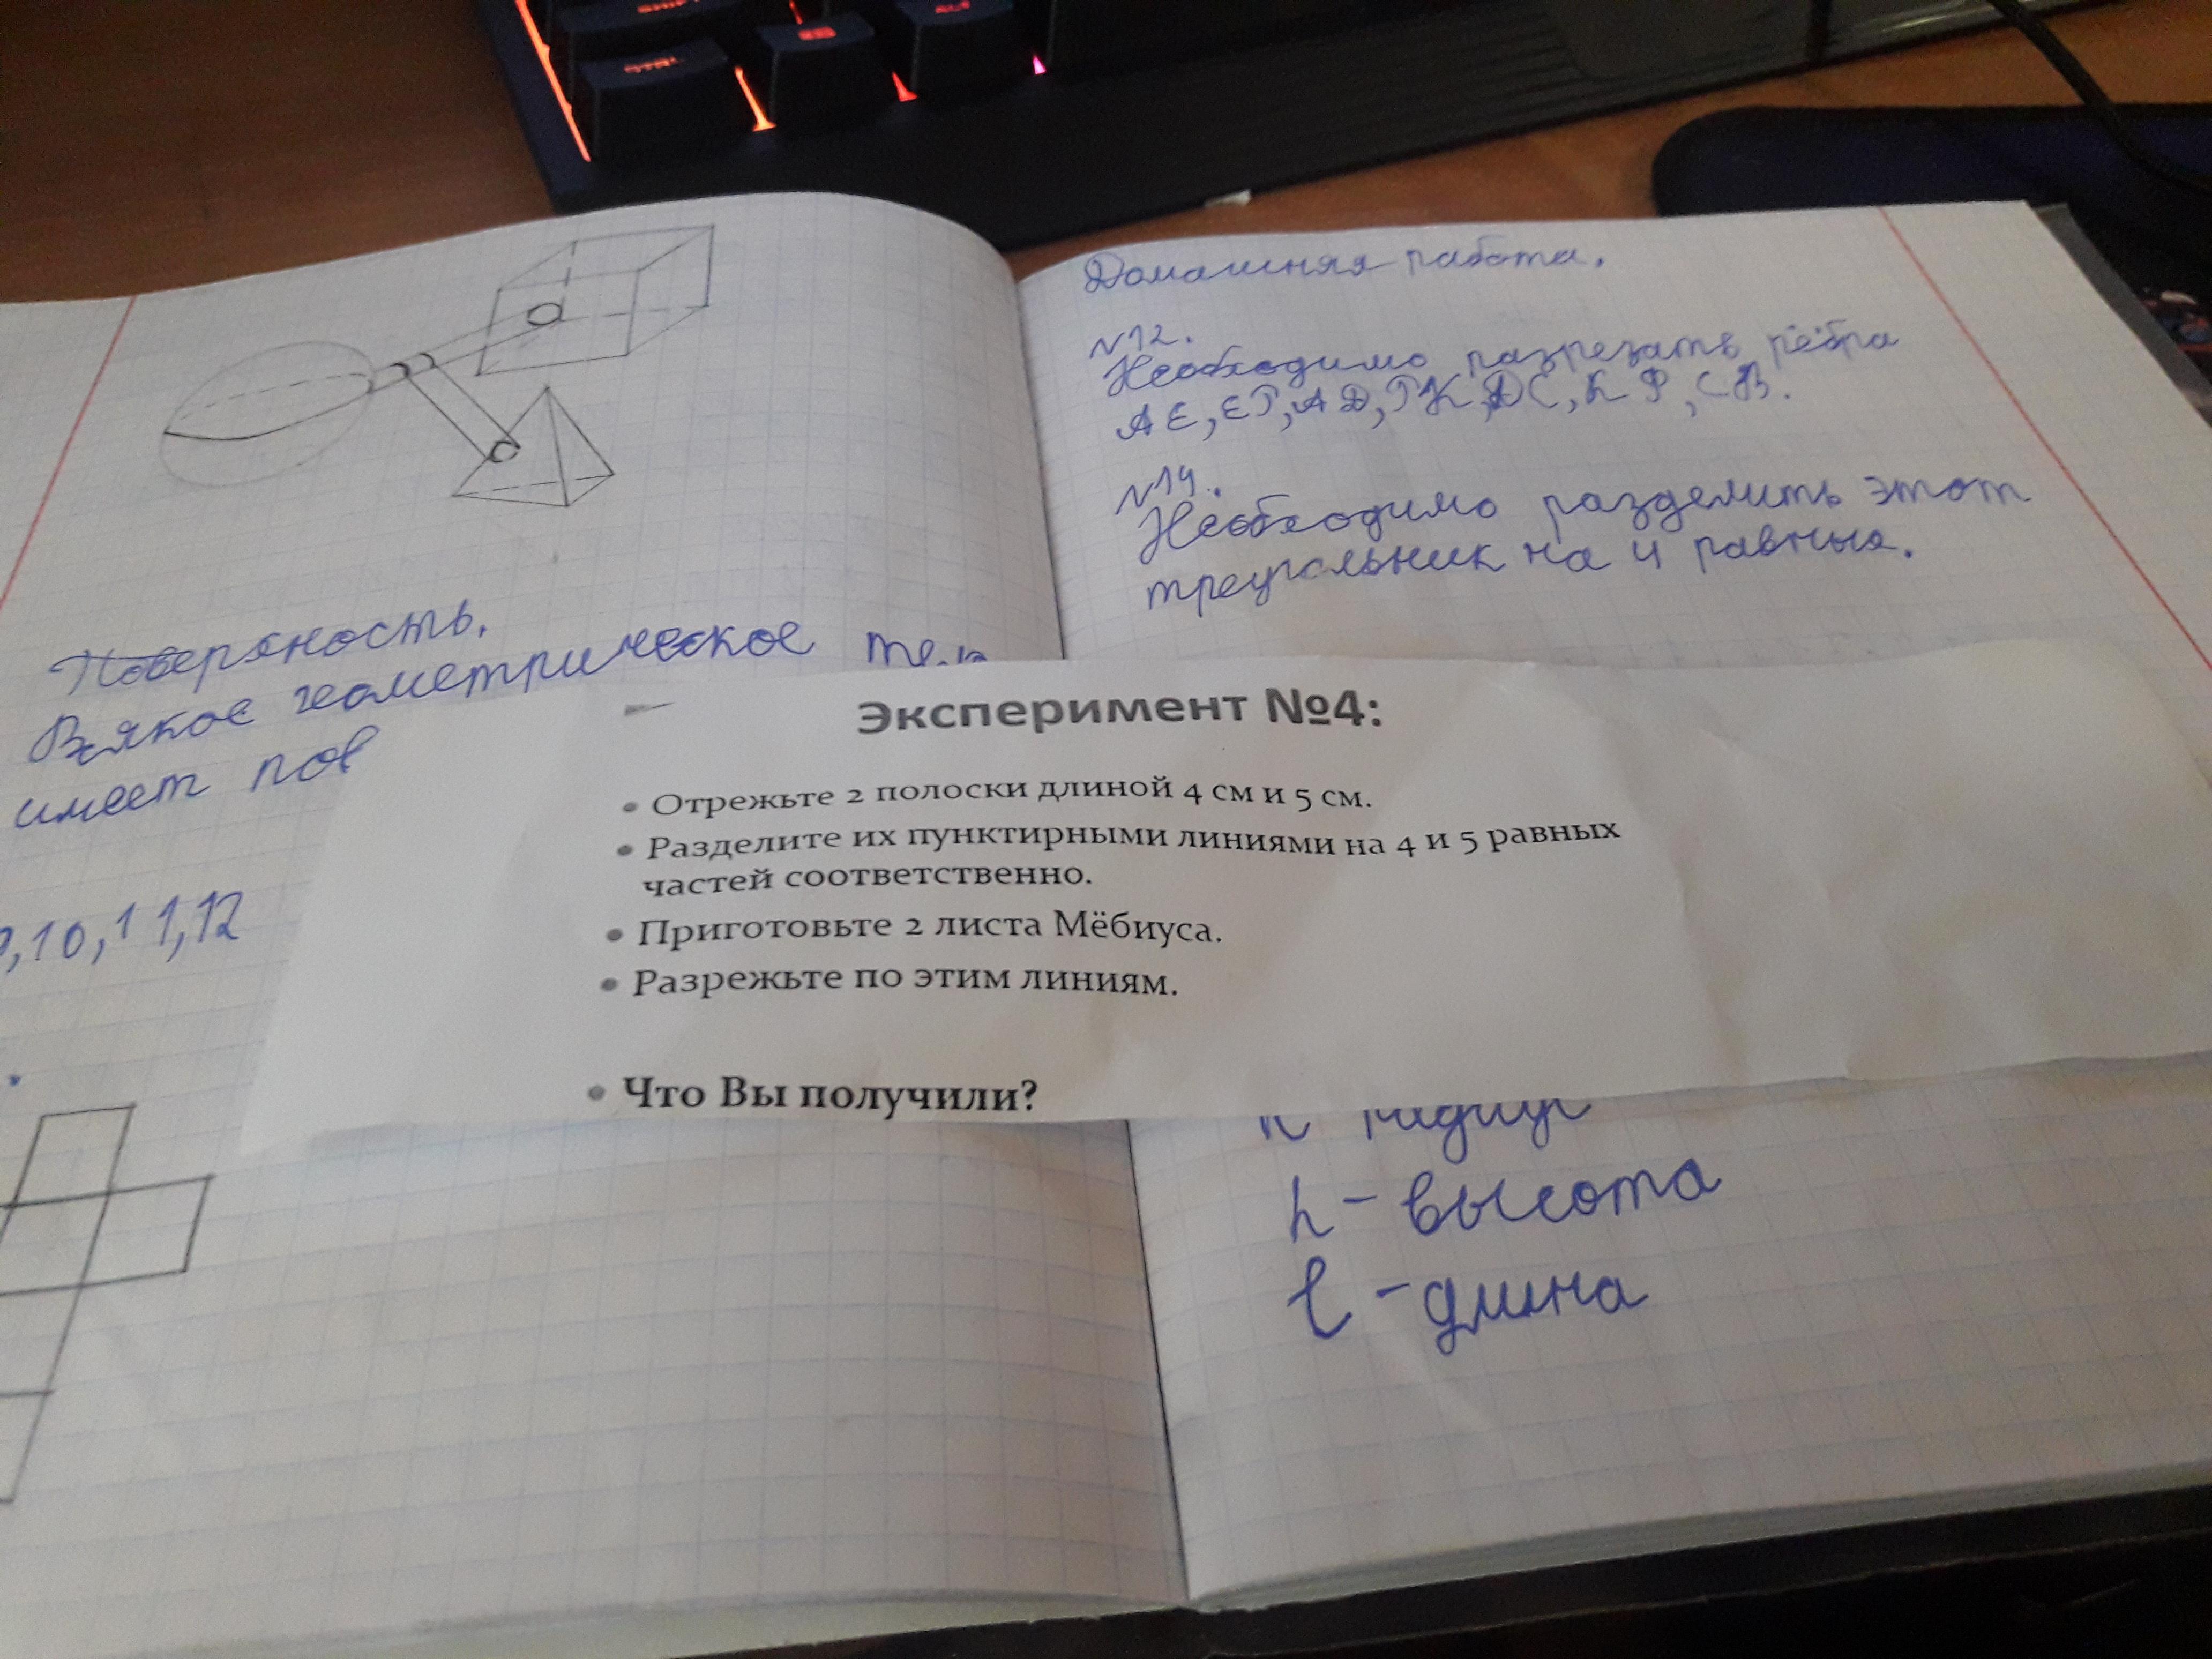 SHIFT
CTRL
ALT
Поверхность.
Всякое геометрическое
имеет пов
,10,11,12
Домашняя работа.
№12.
Необходимо разрезать рёбра
АЕ, ЕР, АД, РК, ДС, КР, СВ.
№14.
Необходимо разделить этот
треугольник на 4 равных.
Эксперимент №4:
• Отрежьте 2 полоски длиной 4 см и 5 см.
• Разделите их пунктирными линиями на 4 и 5 равных
частей соответственно.
• Приготовьте 2 листа Мёбиуса.
• Разрежьте по этим линиям.
• Что Вы получили?
радиус
h - высота
l - длина